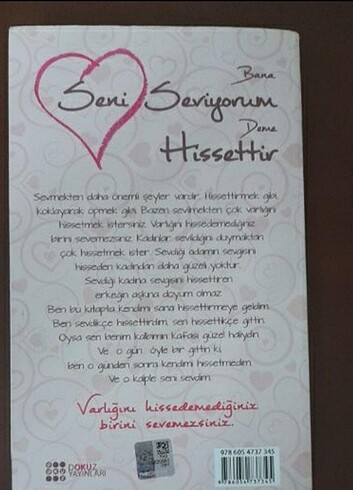 Bana
Seni Seviyorum
Deme
Hissettir
Sevmekten daha önemli şeyler vardır. Hissettirmek gibi,
koklayarak öpmek gibi. Bazen sevilmekten çok varlığını
hissetmek istersiniz. Varlığını hissedemediğiniz
birini sevemezsiniz. Kadınlar sevildiğini duymaktan
çok hissetmek ister. Sevdiği adamın sevgisini
hisseden kadından daha güzeli yoktur.
Sevdiği kadına sevgisini hissettiren
erkeğin aşkına doyum olmaz.
Ben bu kitapta kendimi sana hissettirmeye geldim.
Ben sevdikçe hissettirdim, sen hissettikçe gittin.
Oysa sen benim kalbimin kafası güzel haliydin.
Ve o gün öyle bir gittin ki,
ben o günden sonra kendimi hissetmedim.
Ve o kalple seni sevdim.
Varlığını hissedemediğiniz
birini sevemezsiniz.
DOKUZ
YAYINLARI
978 605 4737 345
9 786054 737345